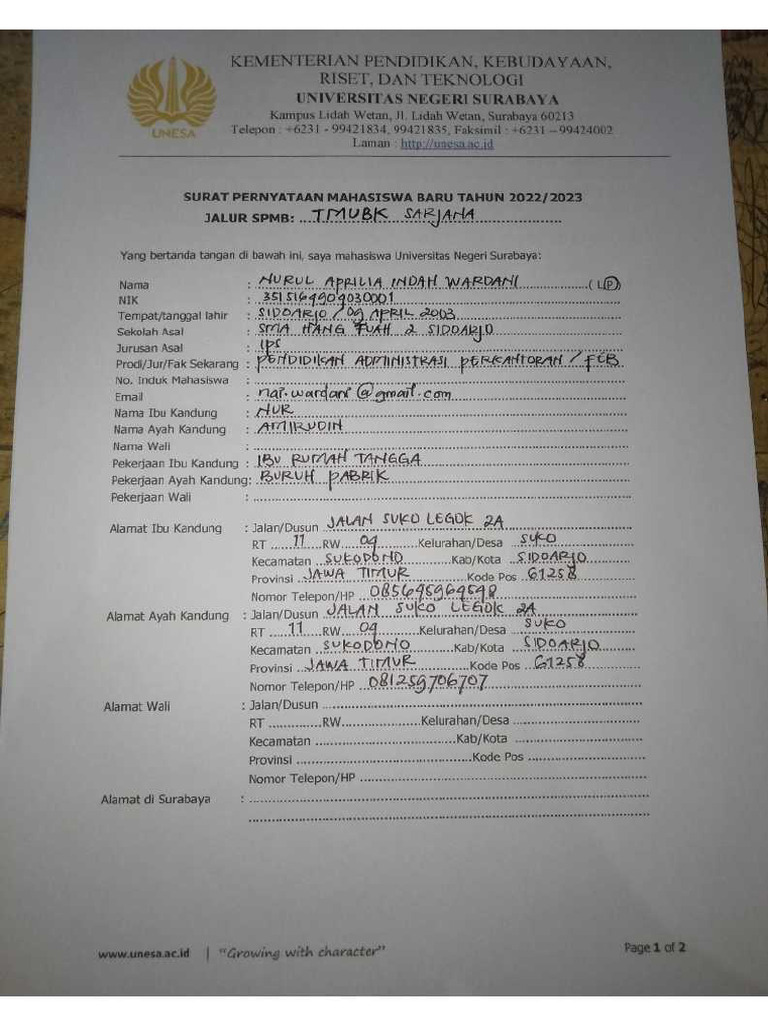 UNESA
KEMENTERIAN PENDIDIKAN, KEBUDAYAAN,
RISET, DAN TEKNOLOGI
UNIVERSITAS NEGERI SURABAYA
Kampus Lidah Wetan, Jl. Lidah Wetan, Surabaya 60213
Telepon : +6231 - 99421834, 99421835, Faksimil : +6231 – 99424002
Laman : http://unesa.ac.id
SURAT PERNYATAAN MAHASISWA BARU TAHUN 2022/2023
JALUR SPMB: TMUBK SARJANA
Yang bertanda tangan di bawah ini, saya mahasiswa Universitas Negeri Surabaya:
Nama : NURUL APRILIA INDAH WARDANI (L P)
NIK : 3515164904030001
Tempat/tanggal lahir : SIDOARJO / 09 APRIL 2003
Sekolah Asal : SMA HANG TUAH 2 SIDOARJO
Jurusan Asal : IPS
Prodi/Jur/Fak Sekarang : PENDIDIKAN ADMINISTRASI PERKANTORAN / FEB
No. Induk Mahasiswa :
Email : nai.wardani@gmail.com
Nama Ibu Kandung : NUR
Nama Ayah Kandung : AMIRUDIN
Nama Wali :
Pekerjaan Ibu Kandung : IBU RUMAH TANGGA
Pekerjaan Ayah Kandung: BURUH PABRIK
Pekerjaan Wali :
Alamat Ibu Kandung : Jalan/Dusun JALAN SUKO LEGOK 2A
RT 11 RW 09 Kelurahan/Desa SUKO
Kecamatan SUKODONO Kab/Kota SIDOARJO
Provinsi JAWA TIMUR Kode Pos 61258
Nomor Telepon/HP 085695969598
Alamat Ayah Kandung : Jalan/Dusun JALAN SUKO LEGOK 2A
RT 11 RW 09 Kelurahan/Desa SUKO
Kecamatan SUKODONO Kab/Kota SIDOARJO
Provinsi JAWA TIMUR Kode Pos 61258
Nomor Telepon/HP 081259706707
Alamat Wali : Jalan/Dusun
RT RW Kelurahan/Desa
Kecamatan Kab/Kota
Provinsi Kode Pos
Nomor Telepon/HP
Alamat di Surabaya :
www.unesa.ac.id | "Growing with character" Page 1 of 2